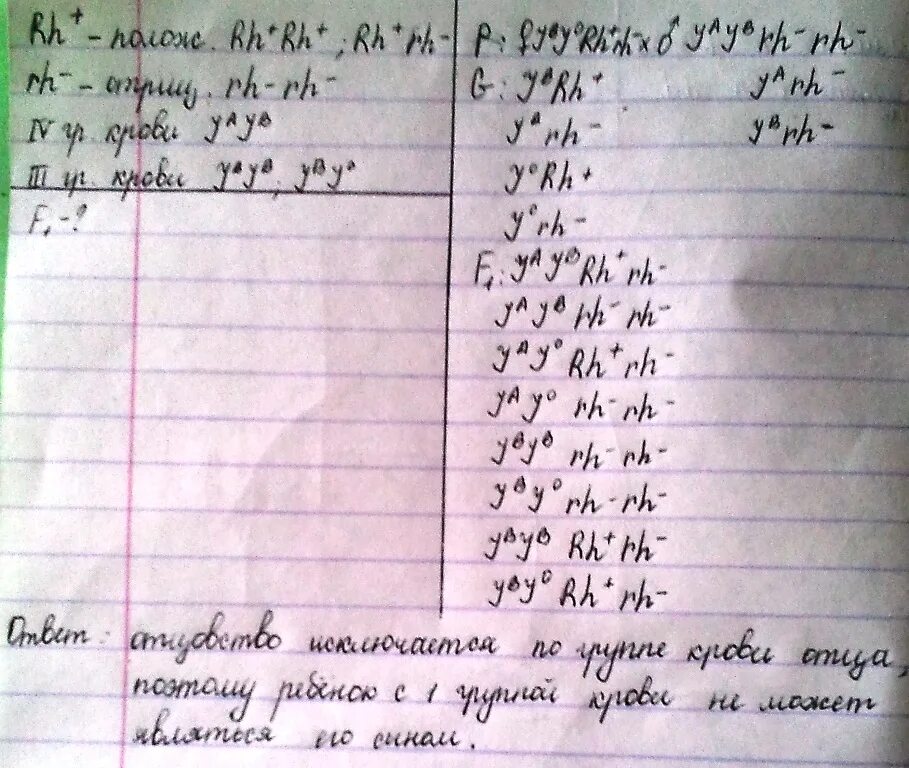 Rh⁺ – полож. Rh⁺Rh⁺; Rh⁺rh⁻
rh⁻ – отриц. rh⁻rh⁻
IV гр. крови yᴬyᴮ
III гр. крови yᴮyᴮ, yᴮy⁰
F₁ -?
P: ♀yᴮy⁰Rh⁺rh⁻ × ♂ yᴬyᴮrh⁻rh⁻
G: yᴮRh⁺ yᴬrh⁻
yᴮrh⁻ yᴮrh⁻
y⁰Rh⁺
y⁰rh⁻
F₁: yᴬyᴮRh⁺rh⁻
yᴬyᴮ rh⁻rh⁻
yᴬy⁰ Rh⁺rh⁻
yᴬy⁰ rh⁻rh⁻
yᴮyᴮ rh⁻rh⁻
yᴮy⁰ rh⁻rh⁻
yᴮyᴮ Rh⁺rh⁻
yᴮy⁰ Rh⁺rh⁻
Ответ: отцовство исключается по группе крови отца,
поэтому ребёнок с 1 группой крови не может
являться его сином.